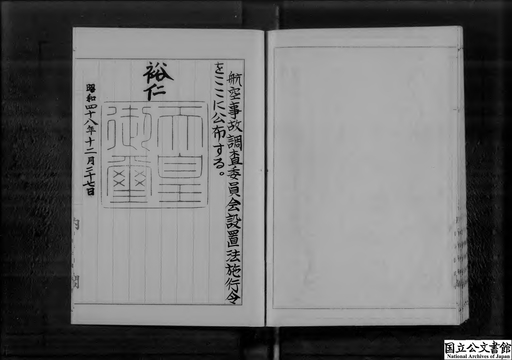 航空事故調査委員会設置法施行令
をここに公布する。
裕仁
天皇
御璽
昭和四十八年十二月二十七日
内閣
国立公文書館
National Archives of Japan